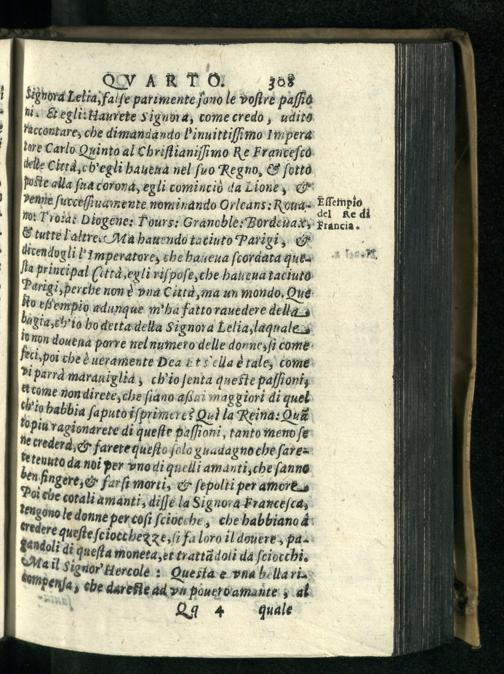 QVARTO. 308
Signora Lelia, false parimente sono le vostre passio
ni. Et egli: Haurete Signora, come credo, udito
raccontare, che dimandando l'inuittissimo Impera
tore Carlo Quinto al Christianissimo Re Francesco
delle Città, ch'egli haueua nel suo Regno, & sotto
poste alla sua corona, egli cominciò da Lione, &
venne successiuamente nominando Orleans: Roua-
no: Troia: Diogene: Tours: Granoble: Bordeuax,
& tutte l'altre. Ma hauendo taciuto Parigi, &
dicendogli l'Imperatore, che haueua scordata que-
sta principal Città, egli rispose, che haueua taciuto
Parigi, perche non è vna Città, ma un mondo. Que
sto essempio adunque m'ha fatto rauedere della
bugia, ch'io ho detta della Signora Lelia, laquale
io non doueua porre nel numero delle donne, si come
feci, poi che è ueramente Dea Et s'ella è tale, come
vi parrà marauiglia, ch'io senta queste passioni,
et come non direte, che siano assai maggiori di quel
ch'io habbia saputo isprimere? Quì la Reina: Quā
to piu ragionarete di queste passioni, tanto meno se
ne crederà, & farete questo solo guadagno che sare-
te tenuto da noi per vno di quelli amanti, che sanno
ben fingere, & farsi morti, & sepolti per amore
Poi che cotali amanti, disse la Signora Francesca,
tengono le donne per cosi sciocche, che habbiano à
credere queste sciocchezze, si fa loro il douere, pa-
gandoli di questa moneta, et trattādoli da sciocchi.
Ma il Signor Hercole: Questa e vna bella ri-
compensa, che dareste ad vn pouero amante, al
Qq 4 quale
Essempio
del Re di
Francia.